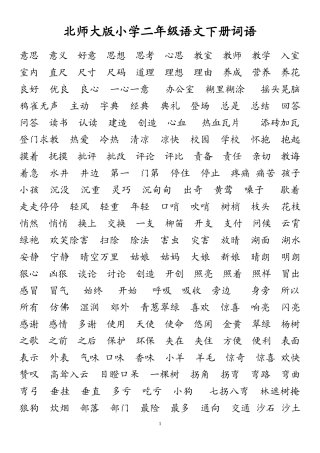 北师大版小学二年级语文下册词语
意思 意义 好意 思想 思考 心思 教室 教学 入室
室内 直尺 尺寸 尺码 道理 理由 理想 养成 营养 养花
良好 优良 良心 一心一意 办公室 糊里糊涂 摇头晃脑
鸦雀无声 主动 主意 自动 发动 登高 总是 总结 回答
问答 读书 读本 认识 知识 创造 心血 热血 瓦片 添砖加瓦
登门求教 热爱 冷热 清凉 凉快 校园 学校 怀抱 抱起
摸着 抚摸 批改 批评 评论 评比 责备 责任 亲切 亲自
着急 水井 井边 第一 第二 停车 停止 疼痛 痛苦 孩子
小孩 沉没 沉重 灵巧 沉甸甸 出奇 黄莺 嗓子 敲着
走走停停 轻风 轻重 年轻 口哨 哨子 树梢 枝头 花枝
悄然 悄悄 接上 交换 一支 柳笛 开支 支付 问候 云霄
绿袍 欢笑除害 扫除 除去 部首 内部 放晴 湖面 湖水
安静 宁静 晴朗 晴天 姑姑 姑娘 大娘 新娘 朗朗 明朗
狠心 凶狠 谈论 讨论 创造 开创 照亮 照着 照样 冒出
感冒 冒气 始终 开始 呼吸 旁边 身旁 所以
所有 仿佛 湿润 郊外 青葱翠绿 喜欢 惊喜 响亮 闪亮
感谢 感情 大使 使用 天使 使劲 劲头 金黄 翠绿 杨树
之歌 之前 之后 住房 住所 各自 各位 方便 便利 表面
表示 大衣 外表 气味 口味 香味 小羊 羊毛 惊奇 惊喜 欢快
真诚 高耸入云 目瞪口呆 一棵 刺耳 多刺 刺激 弯曲 弯腰
弯弓 垂挂 垂直 多亏 吃亏 小弓 七拐八弯 林迷树掩
狼狗 炊烟 部落 部门 最险 最多 交通 沙沙 通知 沙石 沙土
1